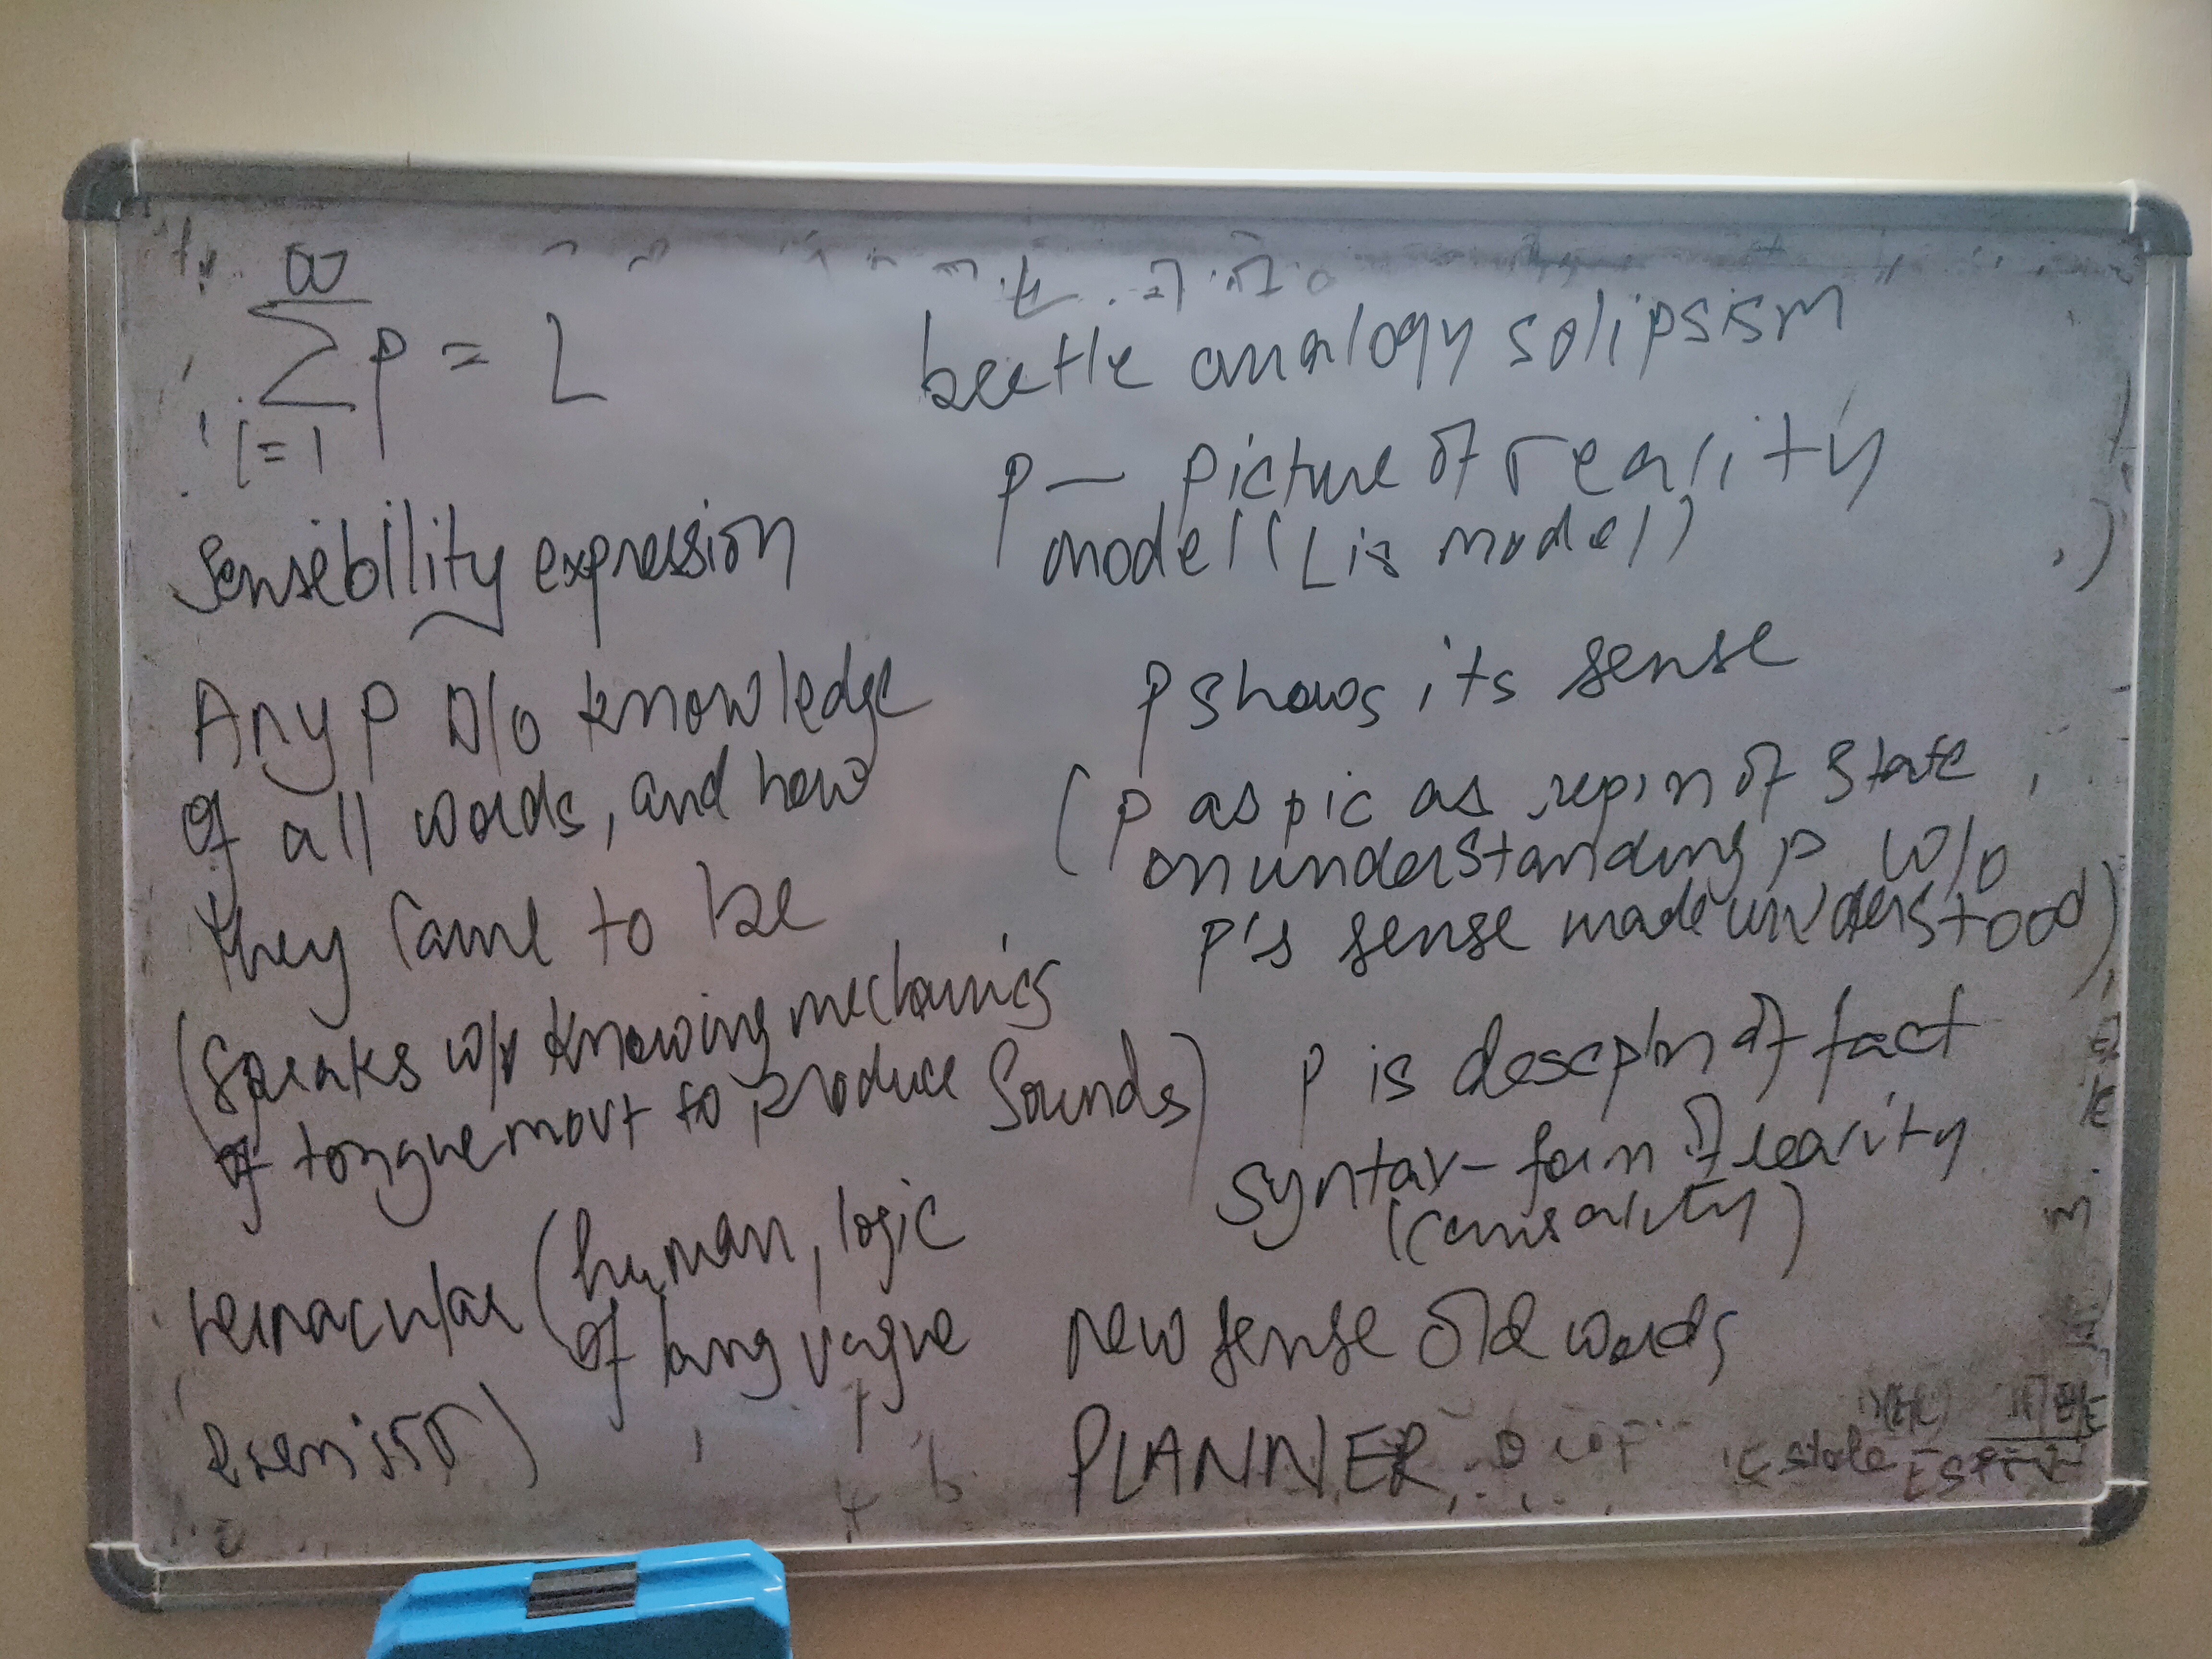 ∞
∑ p = L
i=1
Sensibility expression
Any p w/o knowledge
of all words, and how
they came to be
(Speaks w/o knowing mechanics
of tongue movt to produce sounds)
vernacular (human, logic
of lang vague
)
beetle analogy solipsism
p — picture of reality
model (L is model)
p shows its sense
(p as pic as repsn of state
on understanding p w/o
p's sense made understood)
p is descptn of fact
syntax - form of reality
(causality)
new sense old words
PLANNER